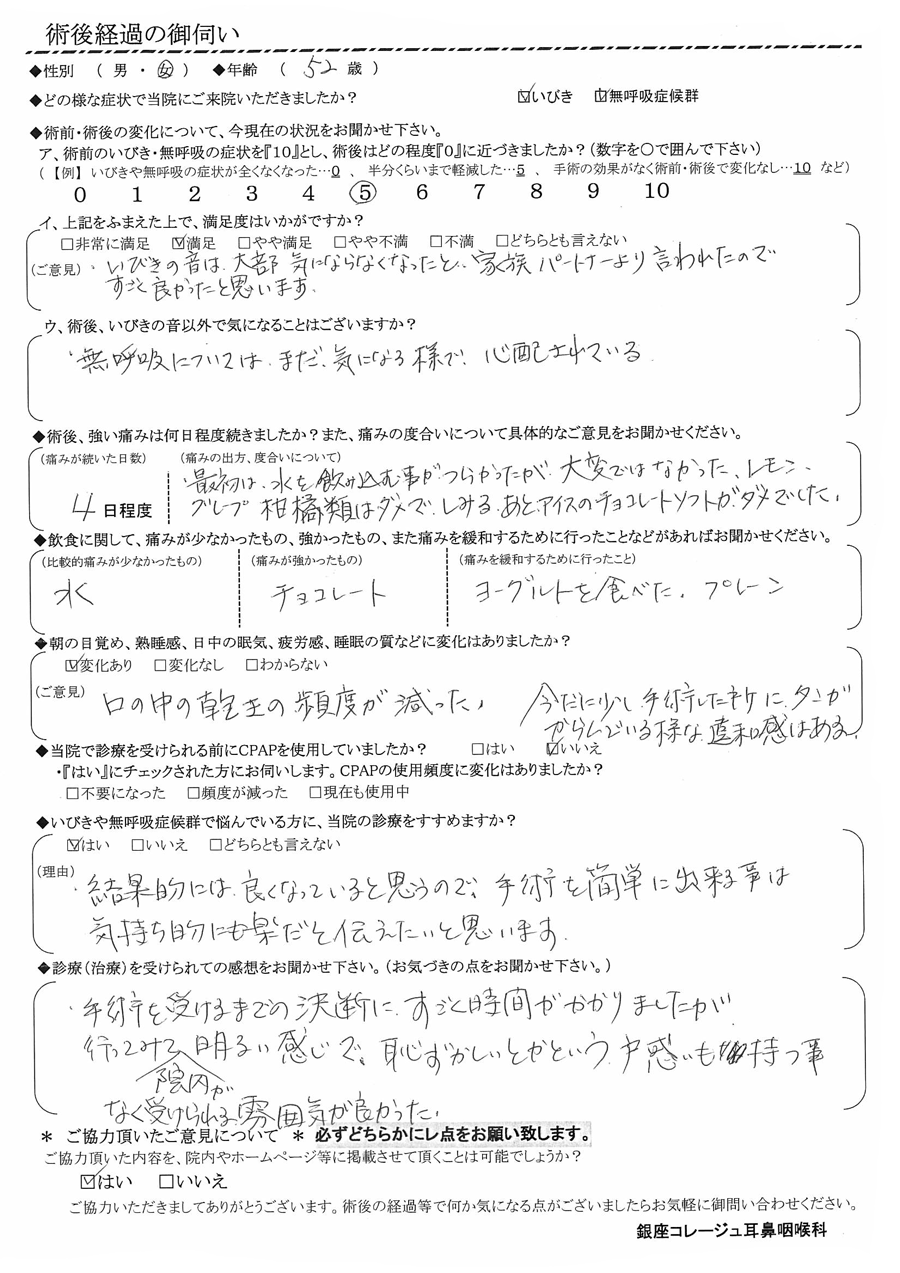 術後経過の御伺い
◆性別　（ 男 ・ 女 ）　◆年齢　（　52 歳 ）
◆どの様な症状で当院にご来院いただきましたか？　☑いびき　☑無呼吸症候群
◆術前・術後の変化について、今現在の状況をお聞かせ下さい。
ア、術前のいびき・無呼吸の症状を『10』とし、術後はどの程度『0』に近づきましたか？（数字を○で囲んで下さい）
（【例】 いびきや無呼吸の症状が全くなくなった…0 、 半分くらいまで軽減した…5 、 手術の効果がなく術前・術後で変化なし…10 など）
0　1　2　3　4　⑤　6　7　8　9　10
イ、上記をふまえた上で、満足度はいかがですか？
□非常に満足　☑満足　□やや満足　□やや不満　□不満　□どちらとも言えない
（ご意見）・いびきの音は、大部 気にならなくなったと、家族 パートナーより 言われたので
すごく良かったと思います。
ウ、術後、いびきの音以外で気になることはございますか？
・無呼吸については、まだ、気になる様で、心配されている
◆術後、強い痛みは何日程度続きましたか？また、痛みの度合いについて具体的なご意見をお聞かせください。
（痛みが続いた日数）　（痛みの出方、度合いについて）
・最初は、水を飲み込む事がつらかったが、大変ではなかった、レモン、
4 日程度　グレープ 柑橘類はダメで、しみる。あと、アイスのチョコレートソフトがダメでした。
◆飲食に関して、痛みが少なかったもの、強かったもの、また痛みを緩和するために行ったことなどがあればお聞かせください。
（比較的痛みが少なかったもの）　（痛みが強かったもの）　（痛みを緩和するために行ったこと）
水　チョコレート　ヨーグルトを食べた。プレーン
◆朝の目覚め、熟睡感、日中の眠気、疲労感、睡眠の質などに変化はありましたか？
☑変化あり　□変化なし　□わからない
（ご意見）　口の中の乾きの頻度が減った。　今だに少し手術した所に、タンが
からんでいる様な違和感はある。
◆当院で診療を受けられる前にCPAPを使用していましたか？　□はい　☑いいえ
・『はい』にチェックされた方にお伺いします。CPAPの使用頻度に変化はありましたか？
□不要になった　□頻度が減った　□現在も使用中
◆いびきや無呼吸症候群で悩んでいる方に、当院の診療をすすめますか？
☑はい　□いいえ　□どちらとも言えない
（理由）・結果的には、良くなっていると思うので、手術を簡単に出来る事は
気持ち的にも楽だと伝えたいと思います。
◆診療（治療）を受けられての感想をお聞かせ下さい。（お気づきの点をお聞かせ下さい。）
・手術を受けるまでの決断に、すごく時間がかかりましたが
行ってみて、明るい感じで、恥ずかしいとかという、戸惑いも持つ事
院内が
なく受けられる雰囲気が良かった。
＊ ご協力頂いたご意見について ＊ 必ずどちらかにレ点をお願い致します。
ご協力頂いた内容を、院内やホームページ等に掲載させて頂くことは可能でしょうか？
☑はい　□いいえ
ご協力いただきましてありがとうございます。術後の経過等で何か気になる点がございましたらお気軽に御問い合わせください。
銀座コレージュ耳鼻咽喉科